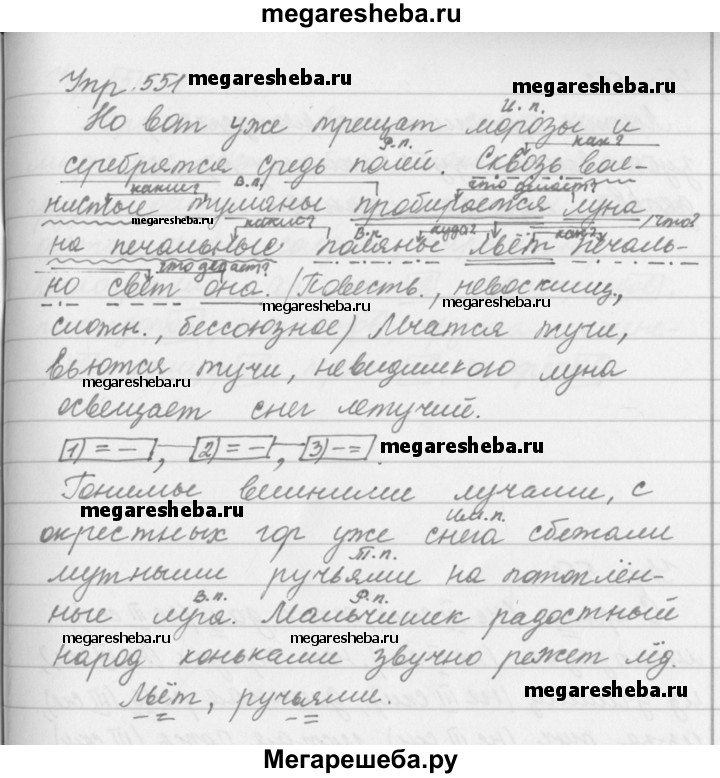 megaresheba.ru
Упр. 551 megaresheba.ru megaresheba.ru
И. п.
Но вот уже трещат морозы и
Р.п. как?
серебрятся средь полей. Сквозь вол-
какие? В.п. что делает?
нистые туманы пробирается луна
megaresheba.ru какие? В.п. куда? как? что?
на печальные поляны льёт печаль-
что делает?
но свет она. (Повесть., невосклиц.,
megaresheba.ru megaresheba.ru
сложн., бессоюзное) Мчатся тучи,
вьются тучи, невидимкою луна
megaresheba.ru
освещает снег летучий.
1) = –, 2) = –, 3) – =. megaresheba.ru
Гонимы вешними лучами, с
megaresheba.ru Им.п.
окрестных гор уже снега сбежали
Т.п.
мутными ручьями на потоплён-
В.п. Р.п.
ные луга. Мальчишек радостный
megaresheba.ru megaresheba.ru
народ коньками звучно режет лёд.
Льёт, ручьями. megaresheba.ru
Мегарешеба.ру